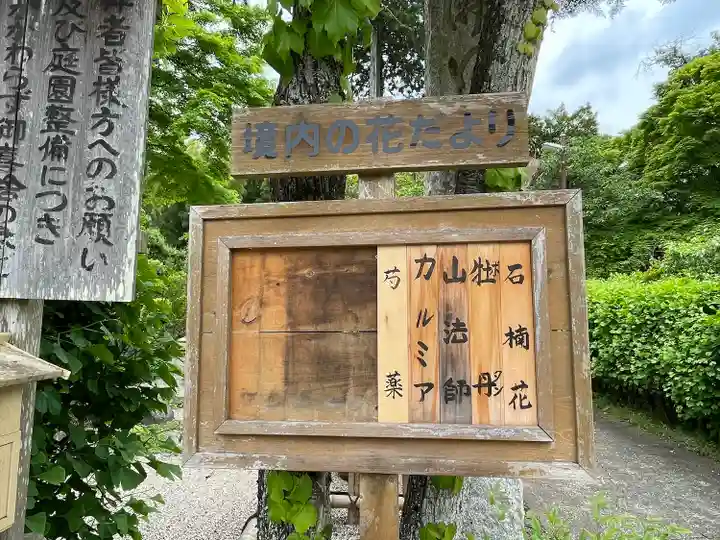 境内の花だより
石楠花
牡丹
ボタン
山法師
カルミア
芍薬
者皆様方へのお願い
及び庭園整備につき